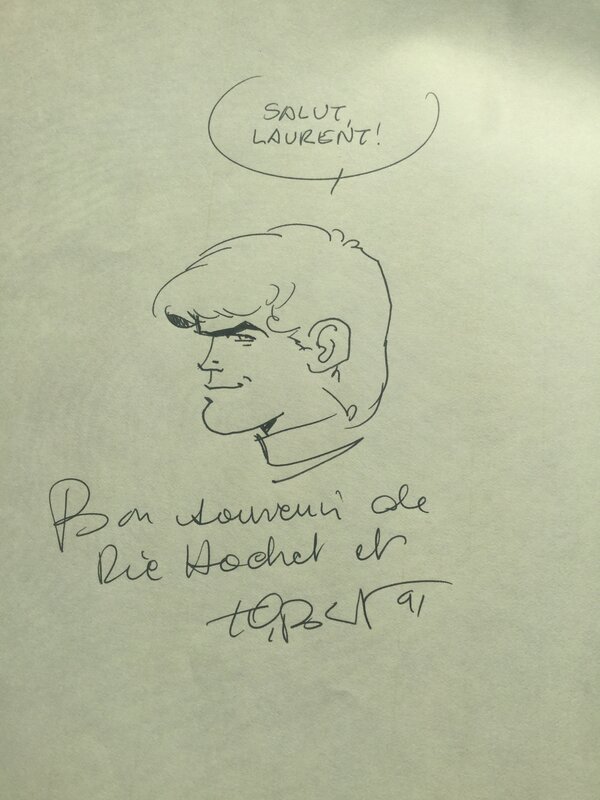 SALUT,
LAURENT!
Bon souvenir de
Ric Hochet et
Tibet 91